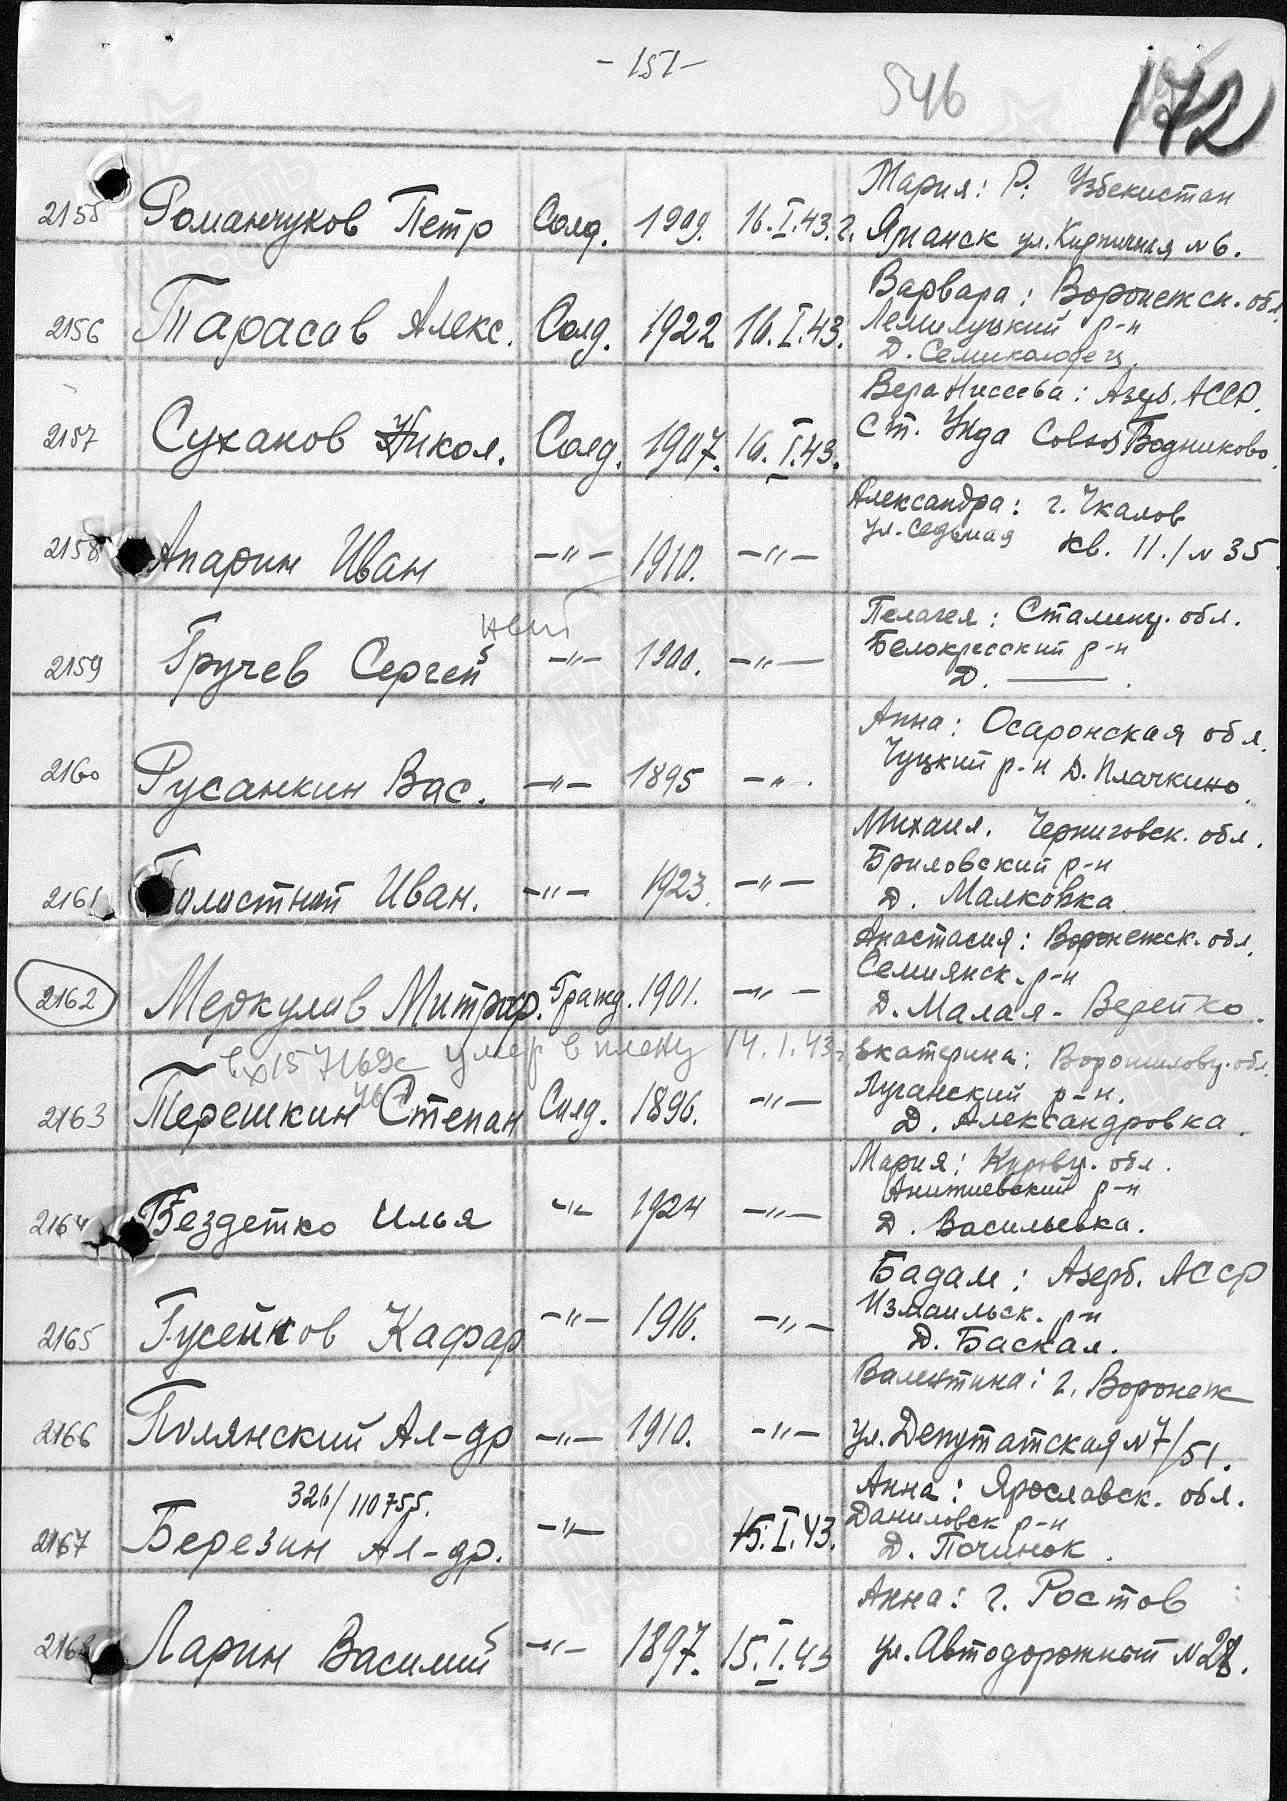 - 151 -
546
172
Мария: Р. Узбекистан
2155 Романчуков Петр Солд. 1909. 16.I.43.г. Янанск ул. Кирпичная №6.
Варвара: Воронежск. обл.
2156 Тарасов Алекс. Солд. 1922 16.I.43. Лемилуцкий р-н
Д. Семиколодец.
Вера Ниссева: Азерб. АССР.
2157 Суханов Никол. Солд. 1907. 16.I.43. Ст. Уида Совхоз Бедниково.
Александра: г. Чкалов
ул. Седьмая кв. 11./№35.
2158 Апарин Иван -"- 1910. -"-
Пелагея: Сталину. обл.
2159 Гручев Сергей -"- 1900. -"- Белокресский р-н
Д. ——— .
Анна: Осаронская обл.
2160 Русанкин Вас. -"- 1895 -"- Чуцкий р-н Д. Плачкино.
Михаил. Черниговск. обл.
Бриловский р-н
2161 Полостной Иван. -"- 1923. -"- Д. Малковка.
Анастасия: Воронежск. обл.
Семиянск. р-н
2162 Меркулов Митроф. Гражд. 1901. -"- Д. Малая-Верейко.
умер в плену 14.1.43г. Екатерина: Ворошилову. обл.
Луганский р-н.
2163 Терешкин Степан Солд. 1896. -"- Д. Александровка.
Мария: обл.
Анитиевский р-н
2164 Бездетко Илья -"- 1924 -"- Д. Васильевка.
Бадам: Азерб. АССР
Измаильск. р-н
2165 Гусейнов Кафар -"- 1916. -"- Д. Баскал.
Валентина: г. Воронеж
2166 Полянский Ал-др -"- 1910. -"- ул. Депутатская №7/51.
326/110755.
Анна: Ярославск. обл.
Даниловск р-н
2167 Березин Ал-др. -"- 15.I.43. Д. Починок.
Анна: г. Ростов
2168 Ларин Василий -"- 1897. 15.I.43 ул. Автодорожный №28.